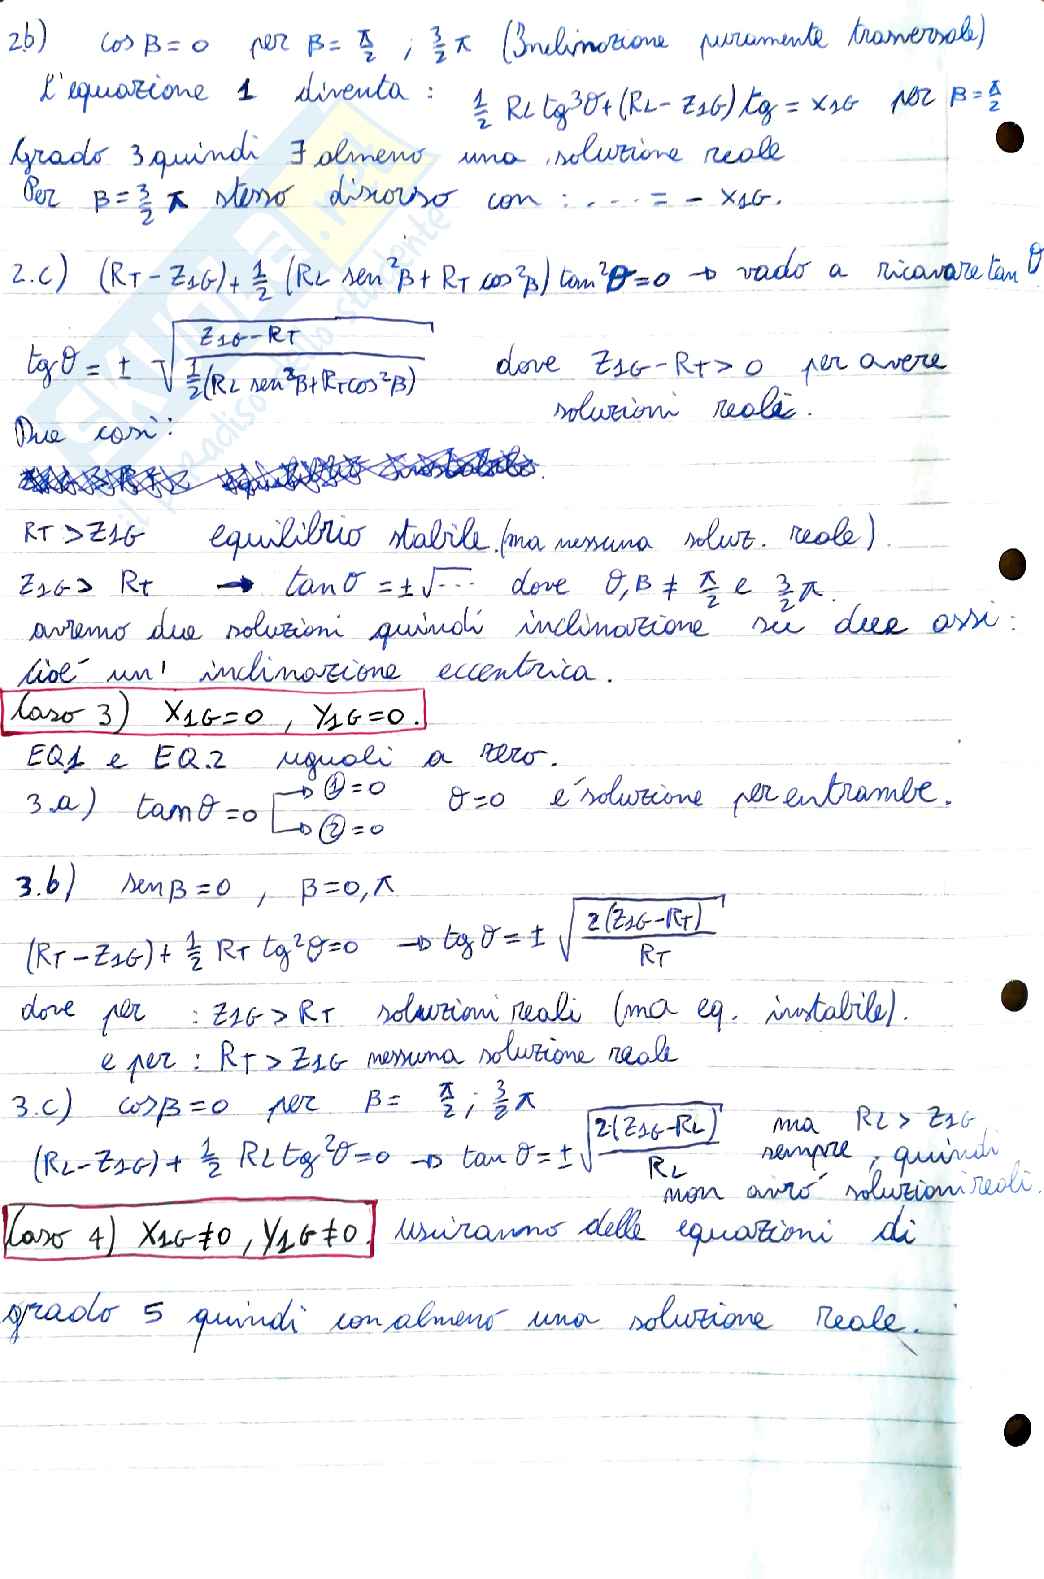 2b) cos β = 0 per β = π/2 ; 3/2 π (Inclinazione puramente trasversale)
L'equazione 1 diventa : 1/2 RL tg³θ + (RL - Z1G) tg = X1G per β = π/2
Grado 3 quindi ∃ almeno una soluzione reale
Per β = 3/2 π stesso discorso con : .... = - X1G.
2.c) (RT - Z1G) + 1/2 (RL sen²β + RT cos²β) tan²θ = 0 → vado a ricavare tan θ
tgθ = ± √( (Z1G - RT) / (1/2 (RL sen²β + RT cos²β)) ) dove Z1G - RT > 0 per avere
soluzioni reali.
Due casi:
RT > Z1G equilibrio stabile. (ma nessuna soluz. reale).
Z1G > RT → tanθ = ±√... dove θ, β ≠ π/2 e 3/2 π.
avremo due soluzioni quindi inclinazione su due assi :
Cioé un' inclinazione eccentrica.
Caso 3) X1G = 0 , Y1G = 0.
EQ1 e EQ.2 uguali a zero.
3.a) tanθ = 0 → ① = 0 → ② = 0 θ = 0 e' soluzione per entrambe.
3.b) sen β = 0 , β = 0, π
(RT - Z1G) + 1/2 RT tg²θ = 0 → tgθ = ± √( 2(Z1G - RT) / RT )
dove per : Z1G > RT soluzioni reali (ma eq. instabile).
e per : RT > Z1G nessuna soluzione reale
3.c) cosβ = 0 per β = π/2 ; 3/2 π
(RL - Z1G) + 1/2 RL tg²θ = 0 → tan θ = ± √( 2(Z1G - RL) / RL ) ma RL > Z1G,
sempre, quindi
non avró soluzioni reali.
Caso 4) X1G ≠ 0 , Y1G ≠ 0. usciranno delle equazioni di
grado 5 quindi con almeno una soluzione reale.
SKUOLA.net
il paradiso dello studente